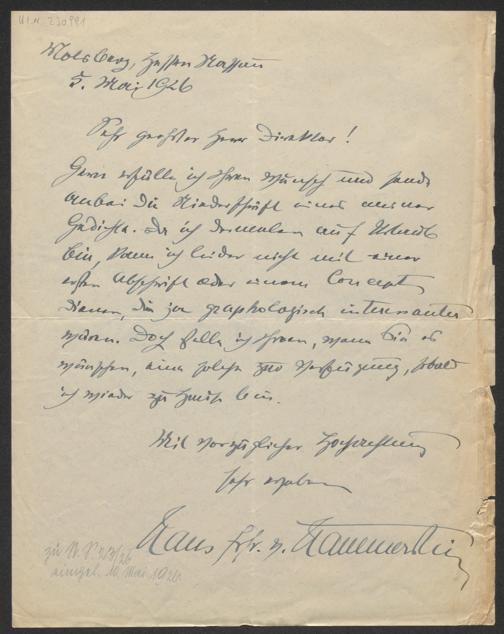 H.I.N. 230991
Molsberg, Hessen Nassau
5. Mai 1926
Sehr geehrter Herr Direktor!
Gern erfülle ich Ihren Wunsch und sende
anbei die Niederschrift eines meiner
Gedichte. Da ich dermalen auf Urlaub
bin, kann ich leider nicht mit einer
ersten Abschrift oder einem Concept
dienen, die ja graphologisch interessanter
wären. Doch stelle ich Ihnen, wenn Sie es
wünschen, eine solche zur Verfügung, sobald
ich wieder zu Hause bin.
Mit vorzüglicher Hochachtung
sehr ergeben
Hans Frh. v. Hammerstein
zu
eingel. 10. Mai 1926